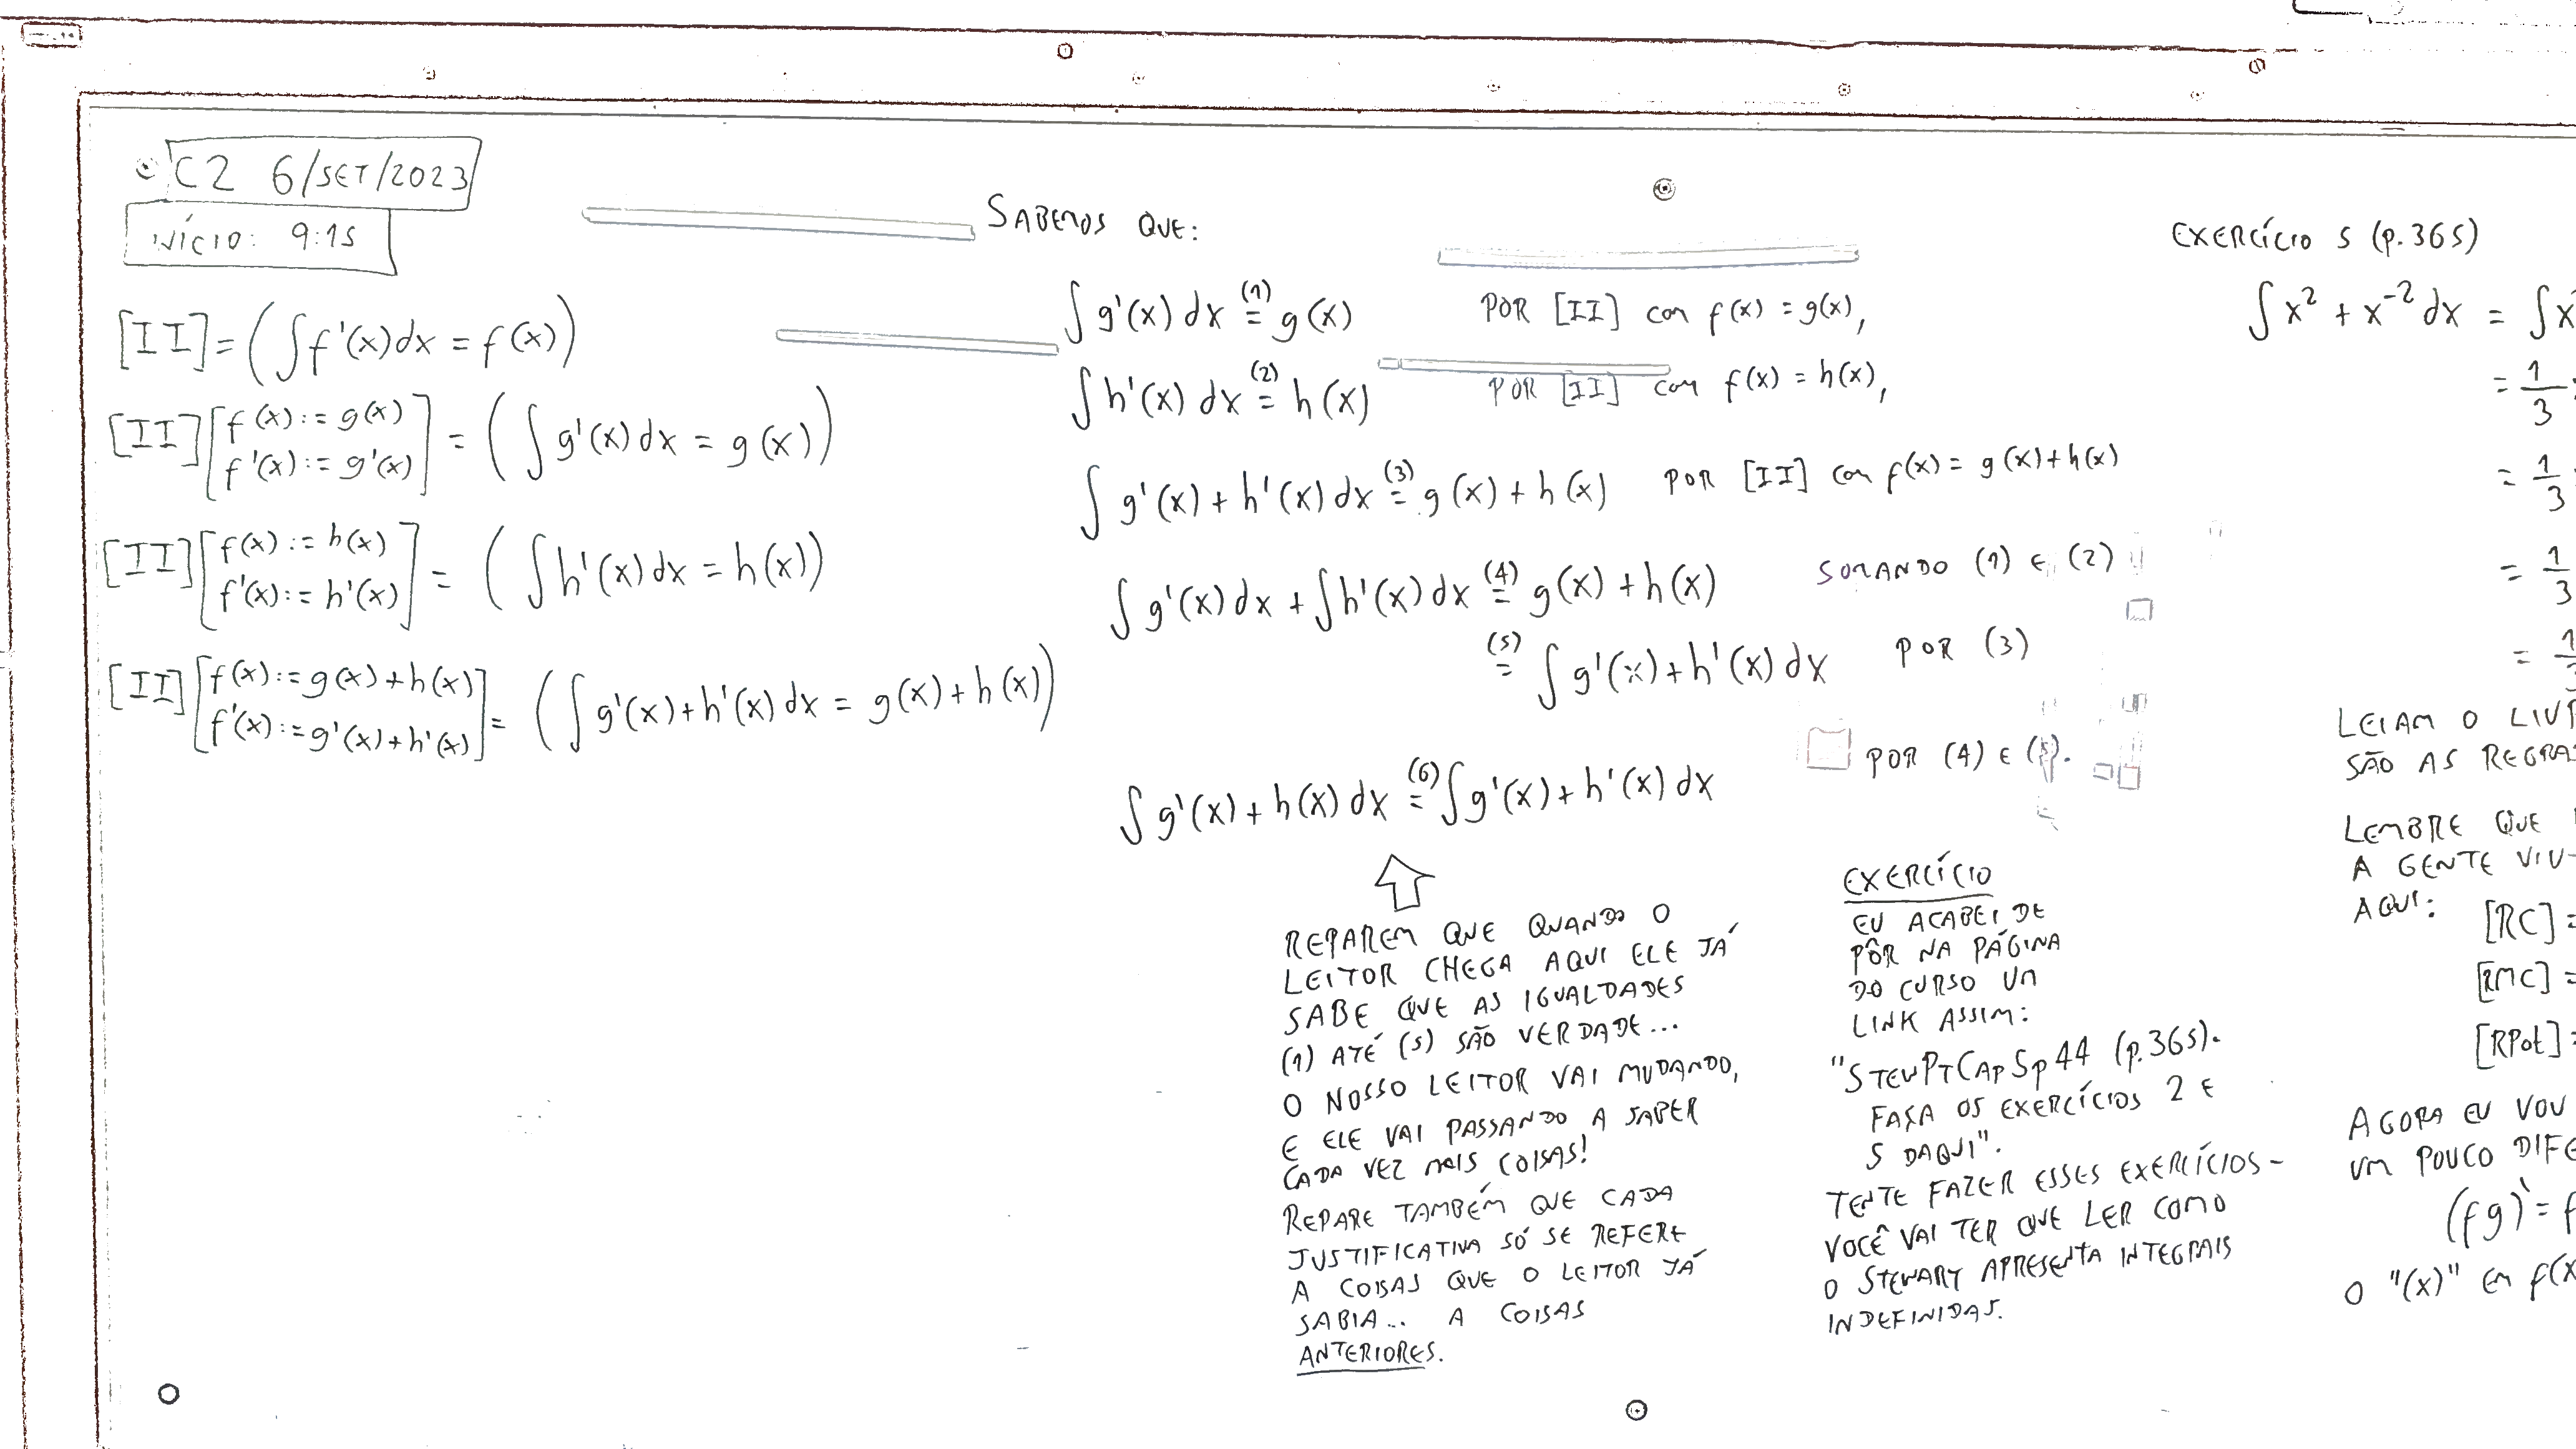 C2 6/SET/2023
INÍCIO: 9:15
[II] = (∫f'(x)dx = f(x))
[II] [f(x) := g(x)
f'(x) := g'(x)] = (∫g'(x)dx = g(x))
[II] [f(x) := h(x)
f'(x) := h'(x)] = (∫h'(x)dx = h(x))
[II] [f(x) := g(x)+h(x)
f'(x) := g'(x)+h'(x)] = (∫g'(x)+h'(x)dx = g(x)+h(x))
SABEMOS QUE:
∫g'(x)dx (1)= g(x) POR [II] COM f(x) = g(x),
∫h'(x)dx (2)= h(x) POR [II] COM f(x) = h(x),
∫g'(x)+h'(x)dx (3)= g(x)+h(x) POR [II] COM f(x) = g(x)+h(x)
∫g'(x)dx + ∫h'(x)dx (4)= g(x)+h(x) SOMANDO (1) E (2)
(5)= ∫g'(x)+h'(x)dx POR (3)
∫g'(x)+h(x)dx (6)= ∫g'(x)+h'(x)dx POR (4) E (5).
REPAREM QUE QUANDO O
LEITOR CHEGA AQUI ELE JÁ
SABE QUE AS IGUALDADES
(1) ATÉ (5) SÃO VERDADE...
O NOSSO LEITOR VAI MUDANDO,
E ELE VAI PASSANDO A SABER
CADA VEZ MAIS COISAS!
REPARE TAMBÉM QUE CADA
JUSTIFICATIVA SÓ SE REFERE
A COISAS QUE O LEITOR JÁ
SABIA... A COISAS
ANTERIORES.
EXERCÍCIO
EU ACABEI DE
PÔR NA PÁGINA
DO CURSO UM
LINK ASSIM:
"STEWPTCAP5P44 (p.365).
FAÇA OS EXERCÍCIOS 2 E
5 DAQUI".
TENTE FAZER ESSES EXERCÍCIOS -
VOCÊ VAI TER QUE LER COMO
O STEWART APRESENTA INTEGRAIS
INDEFINIDAS.
EXERCÍCIO 5 (p.365)
∫x² + x⁻² dx = ∫x
= 1/3
= 1/3
= 1/3
= 1/3
LEIAM O
SÃO AS
LEMBRE QUE
A GENTE
AQUI: [RC] =
[RMC] =
[RPot] =
AGORA EU VOU
UM POUCO
(fg)' = f
O "(x)" EM f(x